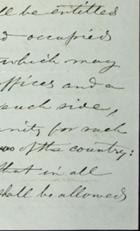 ll be entitled
d occupied
which may
offices and a
such side,
nity for such
of the country:
that in all
shall be allowed